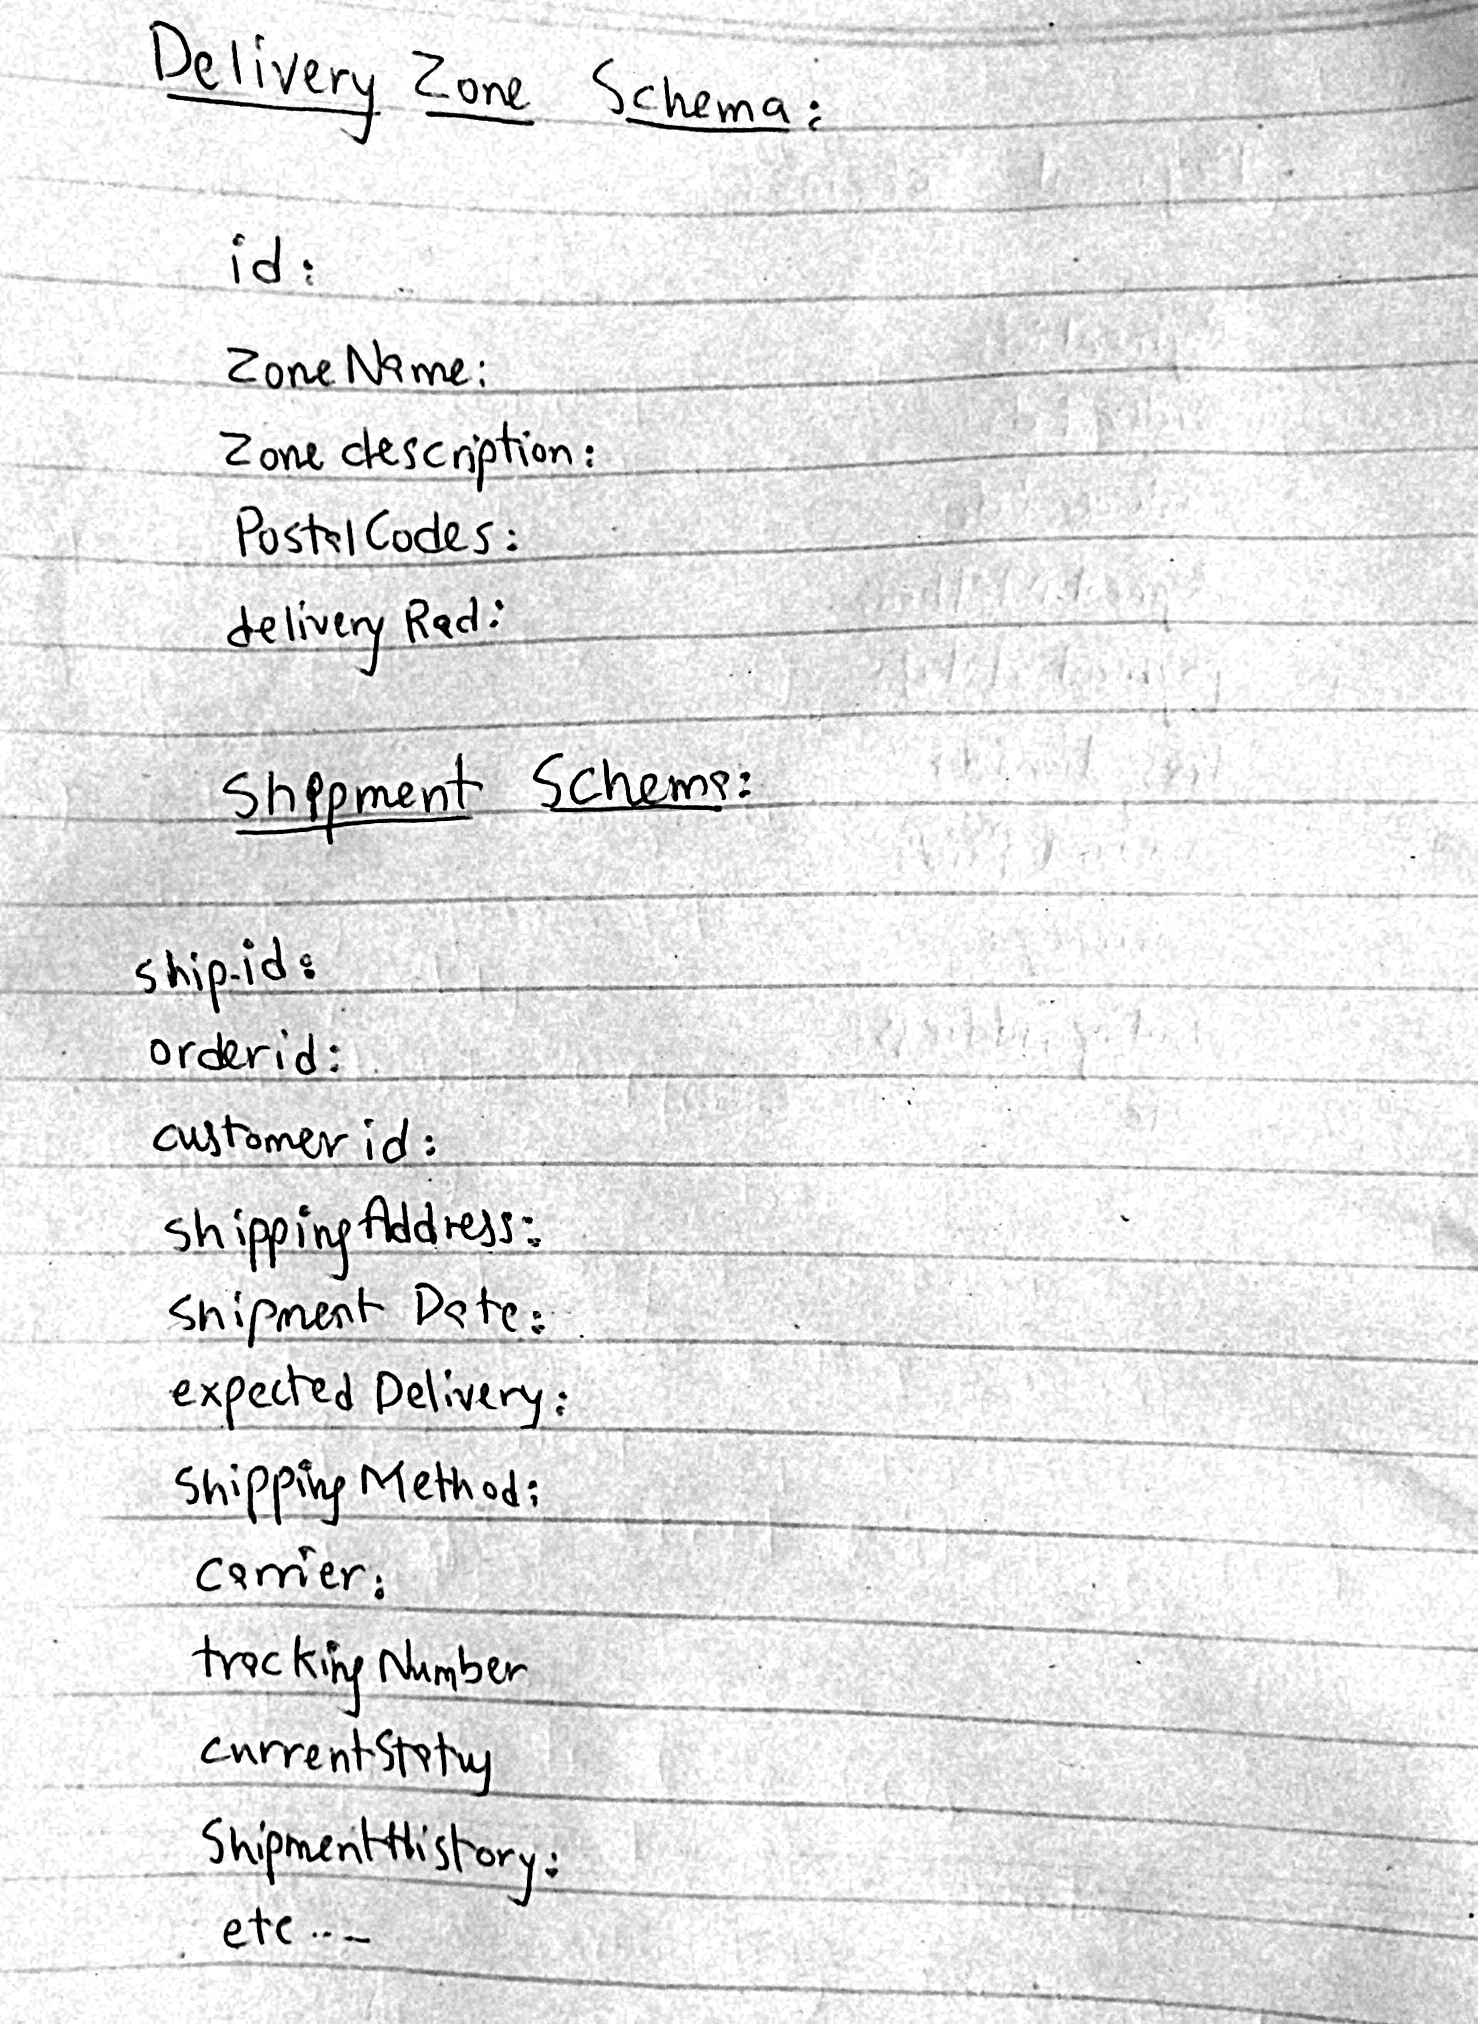 Delivery Zone Schema:
id:
ZoneName:
Zone description:
PostalCodes:
delivery Rad:
Shippment Schema:
ship-id:
orderid:
customer id:
shippingAddress:
shipment Date:
expected Delivery:
shippingMethod:
carrier:
trackingNumber
currentStatus
ShipmentHistory:
etc ...